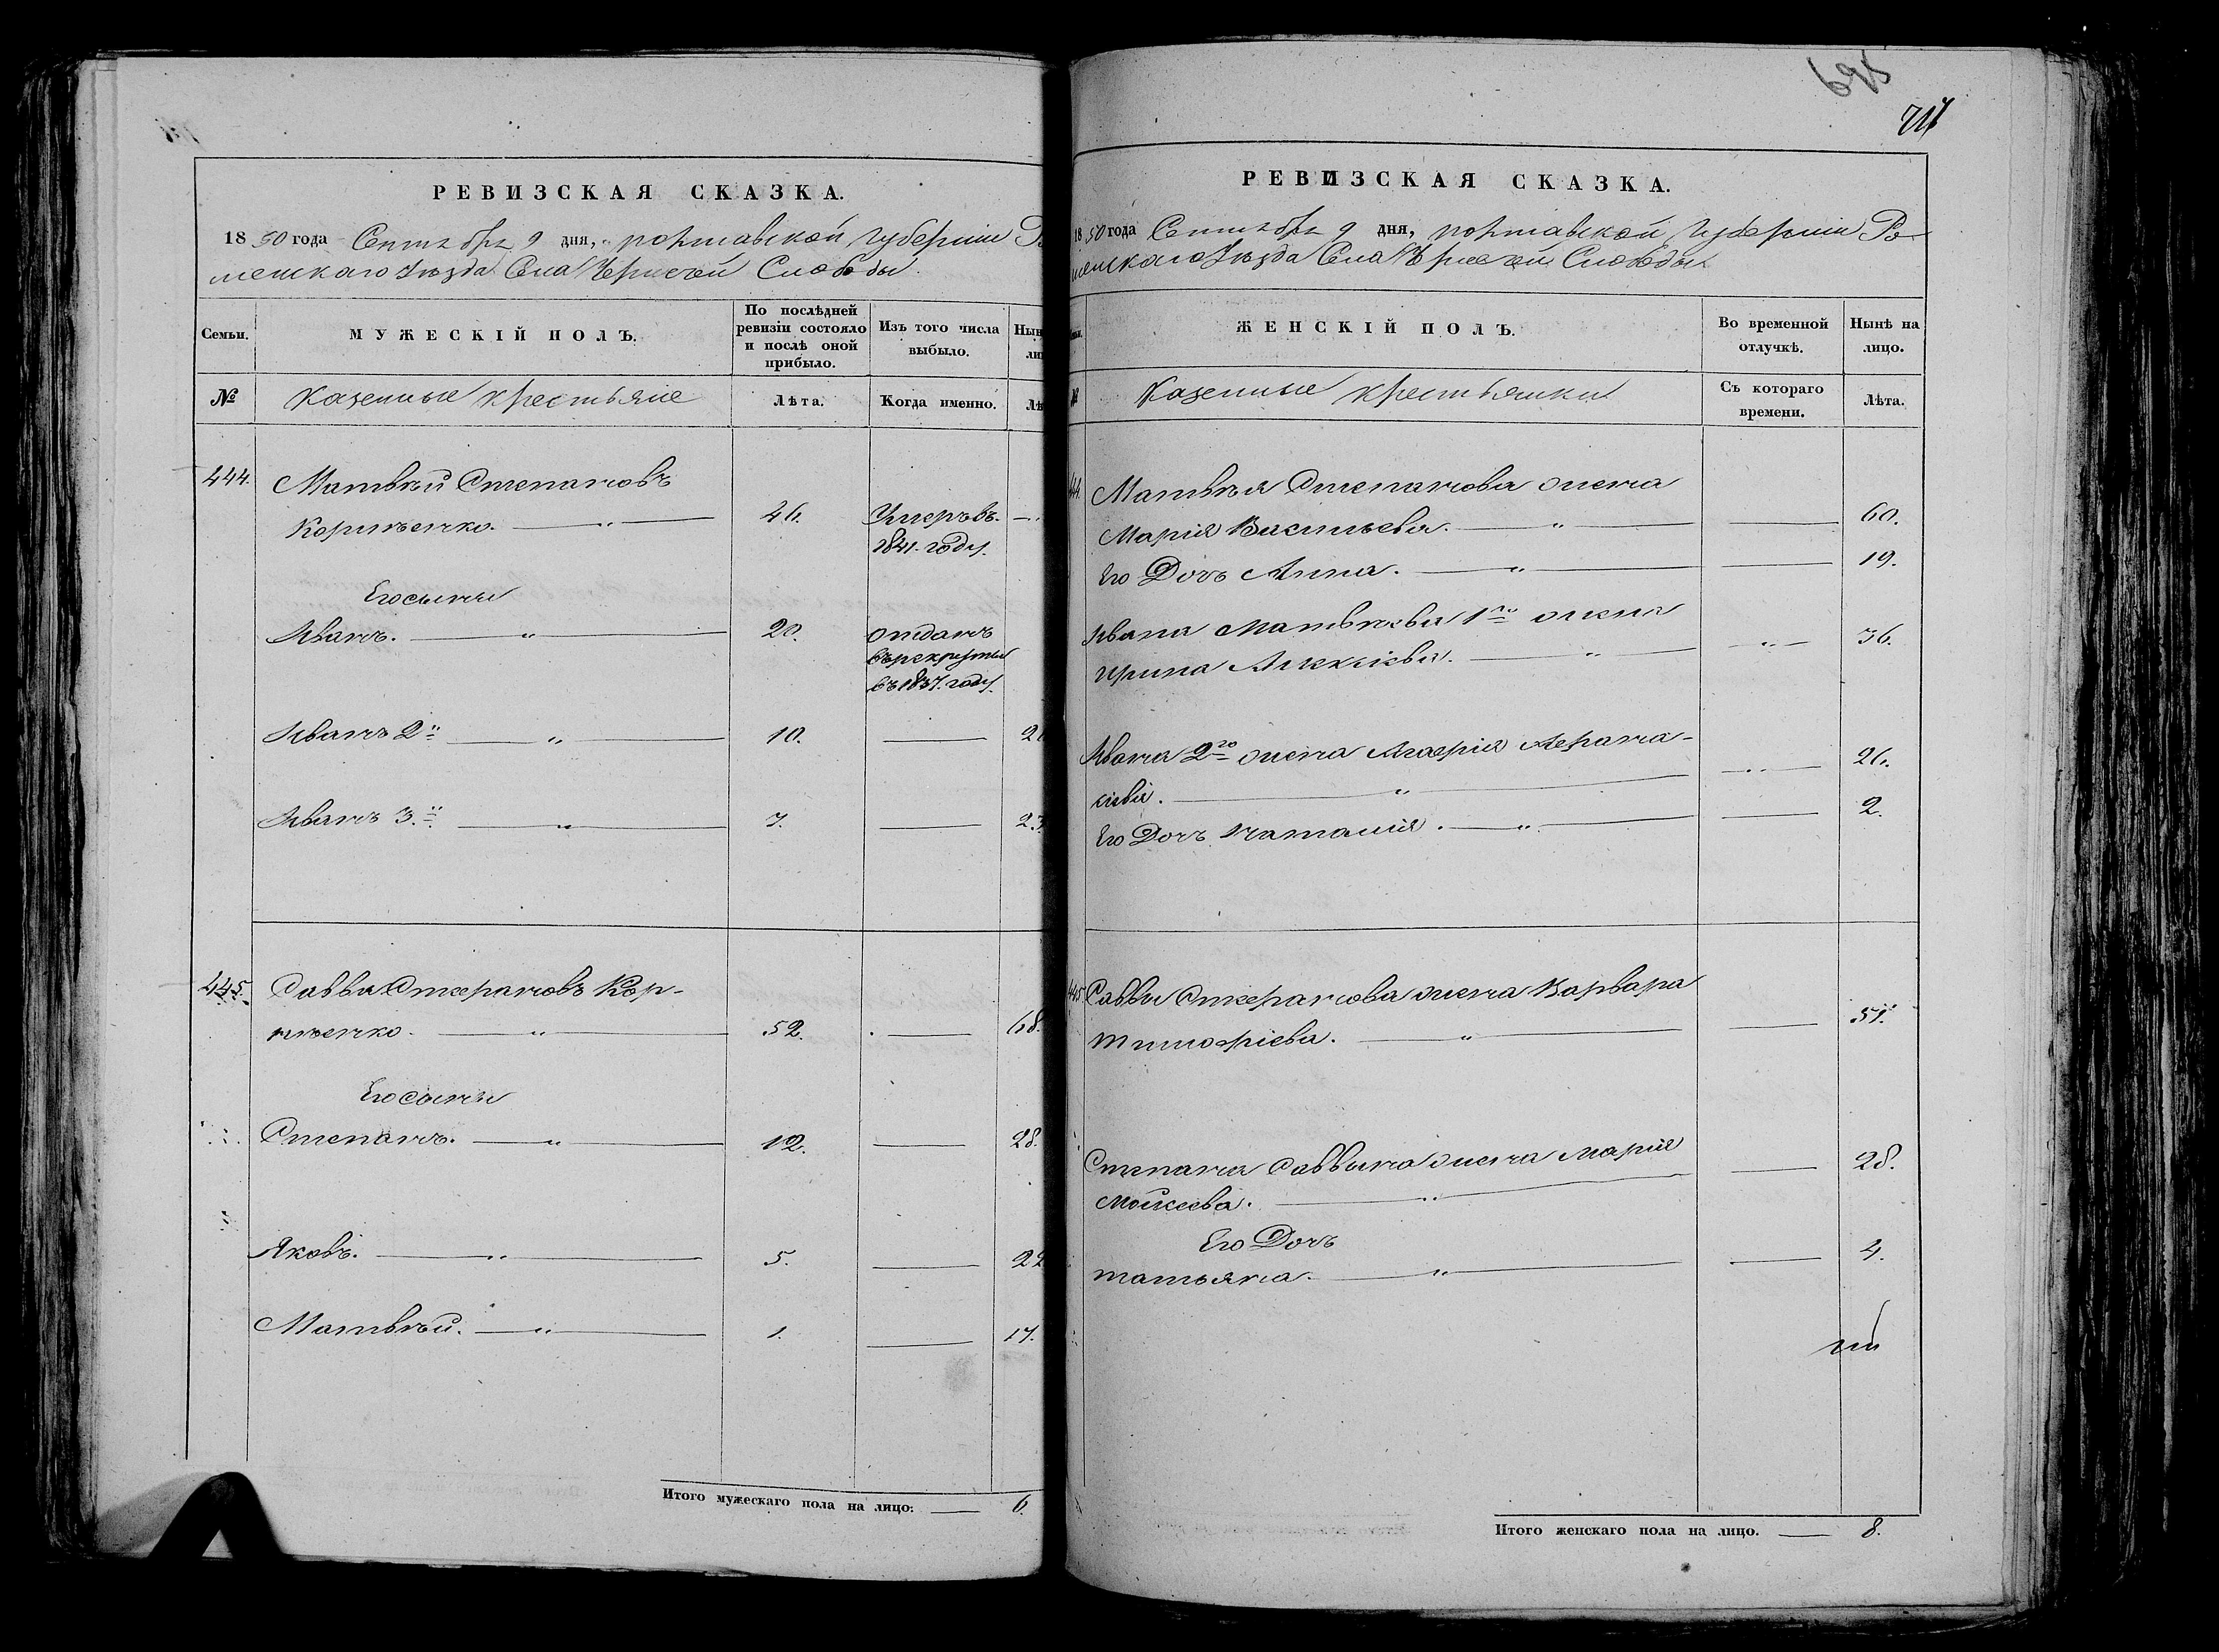 РЕВИЗСКАЯ СКАЗКА.
1850 года Сентября 9 дня, Полтавской Губернии Ро
менскаго Уѣзда Села Чернечей Слободы.
Семьи.
МУЖЕСКІЙ ПОЛЪ.
По послѣдней
ревизіи состояло
и послѣ оной
прибыло.
Изъ того числа
выбыло.
№
Казенные крестьяне
Лѣта.
Когда именно.
444. Матвѣй Степановъ
Корнѣенко. 46. Умеръ въ
1841. году.
Его сыны
Иванъ. 20. отданъ
въ рекруты
въ 1837. году.
Иванъ 2й 10. 26
Иванъ 3.й 7. 23.
445. Савва Степановъ Кор-
нѣенко. 52. 68.
Его сыны
Степанъ. 12. 28.
Яковъ. 5. 22
Матвѣй. 1. 17.
Итого мужескаго пола на лицо: 6.
695
РЕВИЗСКАЯ СКАЗКА.
1850 года Сентября 9 дня, Полтавской Губерніи Ро
менскаго Уѣзда Села Чернечей Слободы
ЖЕНСКІЙ ПОЛЪ.
Во временной
отлучкѣ.
Нынѣ на
лицо.
№
Казенные крестьянки
Съ котораго
времени.
Лѣта.
444. Матвѣя Степанова жена
Марія Васильева. 60.
Его Дочь Анна. 19.
Ивана Матвѣева 1го жена
Ирина Алексіева. 36.
Ивана 2го жена Агафія Афана-
сіева. 26.
Его Дочь Наталія. 2.
445 Саввы Степанова жена Варвара
Тимофіева. 51.
Степана Саввина жена Марія 28.
Мойсеева.
Его Дочь
Татьяна. 4.
Итого женскаго пола на лицо. 8.